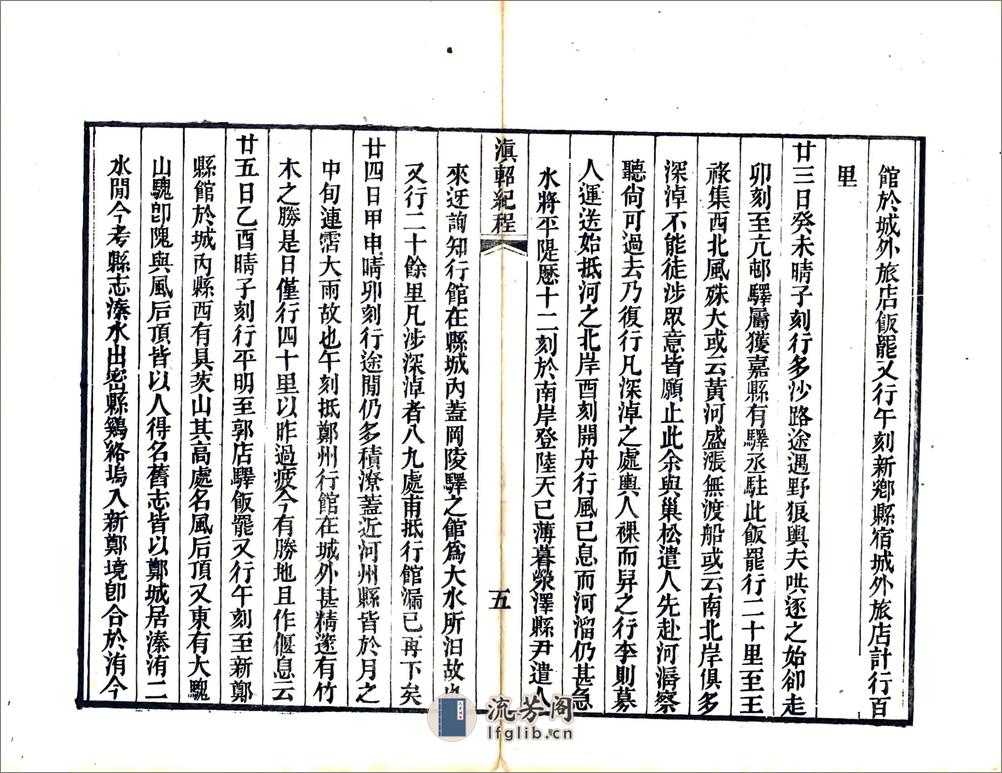 館於城外旅店飯罷又行午刻新鄉縣宿城外旅店計行百
里
廿三日癸未晴子刻行多沙路途遇野狼輿夫哄逐之始卻走
卯刻至亢邨驛屬獲嘉縣有驛丞駐此飯罷行二十里至王
祿集西北風殊大或云黃河盛漲無渡船或云南北岸俱多
深淖不能徒涉眾意皆願止此余與巢松遣人先赴河漘察
聽尙可過去乃復行凡深淖之處輿人裸而舁之行李則募
人運送始抵河之北岸酉刻開舟行風已息而河溜仍甚急
水將平隄歷十二刻於南岸登陸天已薄暮滎澤縣尹遣人
滇軺紀程
五
來迓詢知行館在縣城內蓋岡陵驛之館爲大水所汨故也
又行二十餘里凡涉深淖者八九處甫抵行館漏已再下矣
廿四日甲申晴卯刻行途閒仍多積潦蓋近河州縣皆於月之
中旬連霑大雨故也午刻抵鄭州行館在城外甚精邃有竹
木之勝是日僅行四十里以昨過疲今有勝地且作偃息云
廿五日乙酉晴子刻行平明至郭店驛飯罷又行午刻至新鄭
縣館於城內縣西有具茨山其高處名風后頂又東有大騩
山騩卽隗與風后頂皆以人得名舊志皆以鄭城居溱洧二
水閒今考縣志溱水出密縣鷄絡塢入新鄭境卽合於洧今
流芳阁
lfglib.cn